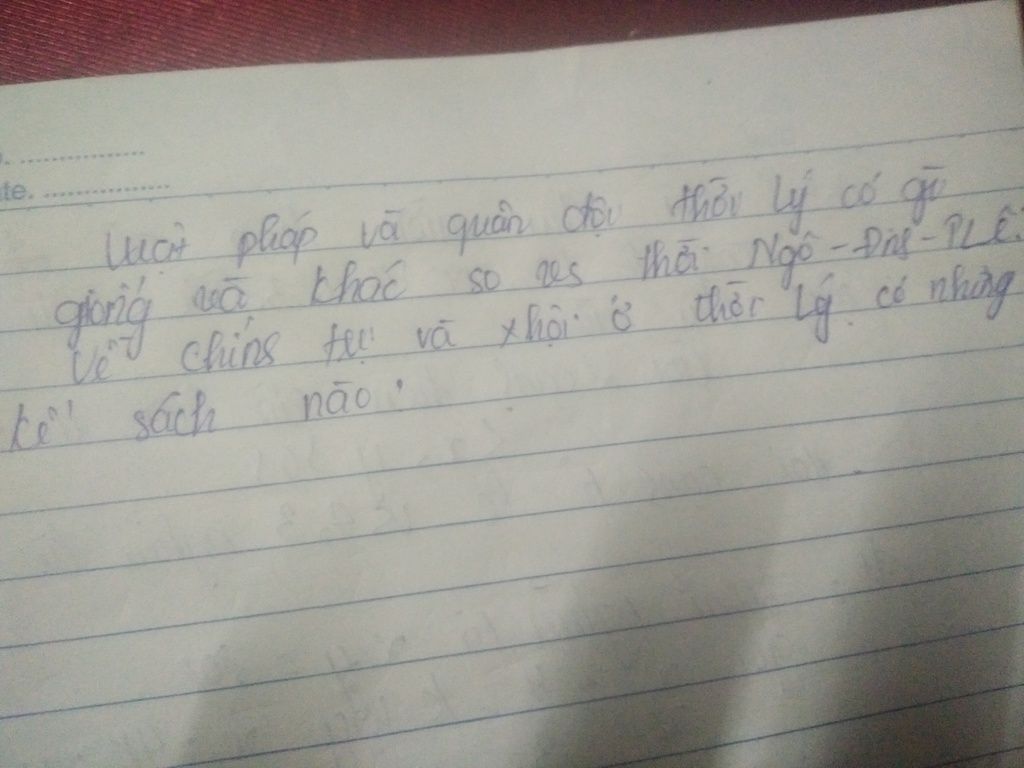 te. ................
Luật pháp và quân đội thời Lý có gì
giống và khác so vs thời Ngô - Đinh - TLê.
Về chính trị và xhội ở thời Lý có những
kế sách nào.